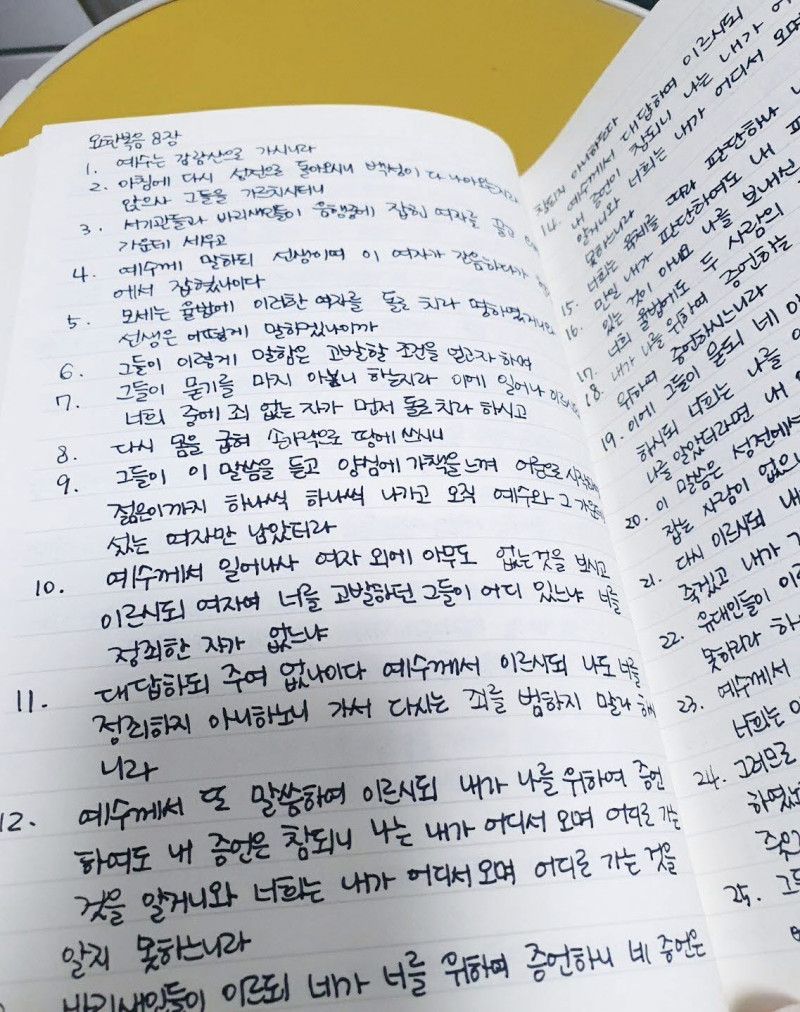 요한복음 8장
1. 예수는 감람산으로 가시니라
2. 아침에 다시 성전으로 들어오시니 백성이 다 나아오는지라
앉으사 그들을 가르치시더니
3. 서기관들과 바리새인들이 음행중에 잡힌 여자를 끌고 와서
가운데 세우고
4. 예수께 말하되 선생이여 이 여자가 간음하다가
에서 잡혔나이다
5. 모세는 율법에 이러한 여자를 돌로 치라 명하였거니와
선생은 어떻게 말하겠나이까
6. 그들이 이렇게 말함은 고발할 조건을 얻고자 하여
7. 그들이 묻기를 마지 아니하는지라 이에 일어나 이르시되
너희 중에 죄 없는 자가 먼저 돌로 치라 하시고
8. 다시 몸을 굽혀 손가락으로 땅에 쓰시니
9. 그들이 이 말씀을 듣고 양심에 가책을 느껴 어른으로 시작하여
젊은이까지 하나씩 하나씩 나가고 오직 예수와 그 가운데
섰는 여자만 남았더라
10. 예수께서 일어나사 여자 외에 아무도 없는것을 보시고
이르시되 여자여 너를 고발하던 그들이 어디 있느냐 너를
정죄한 자가 없느냐
11. 대답하되 주여 없나이다 예수께서 이르시되 나도 너를
정죄하지 아니하노니 가서 다시는 죄를 범하지 말라 하시
니라
12. 예수께서 또 말씀하여 이르시되 내가 나를 위하여 증언
하여도 내 증언은 참되니 나는 내가 어디서 오며 어디로 가는
것을 알거니와 너희는 내가 어디서 오며 어디로 가는 것을
알지 못하느니라
바리새인들이 이르되 네가 너를 위하여 증언하니 네 증언은
참되지 아니하도다
14. 예수께서 대답하여 이르시되
내 증언이 참되니 나는 내가 어
알거니와 너희는 내가 어디서 오며
못하느니라
15. 너희는 육체를 따라 판단하나 나
16. 만일 내가 판단하여도 내 판
있는 것이 아니요 나를 보내신
17. 너희 율법에도 두 사람의
18. 내가 나를 위하여 증언하는
위하여 증언하시느니라
19. 이에 그들이 묻되 네 아
하시되 너희는 나를
나를 알았더라면 내
20. 이 말씀은 성전에서
잡는 사람이 없으니
21. 다시 이르시되 내
죽겠고 내가 가
22. 유대인들이 이르
못하리라 하
23. 예수께서
너희는 이
24. 그러므로
하였노
죽으
25. 그들